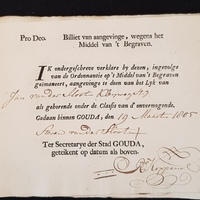 Pro Deo. Billiet van aangevinge, wegens het
Middel van 't Begraven.
IK ondergeschreve verklare by dezen, ingevolge
van de Ordonnantie op 't Middel van 't Begraven
geëmaneert, aangevinge te doen van het Lyk van
Jan van der Sloot
als gehorende onder de Classis van d'onvermogende.
Gedaan binnen GOUDA, den 19 Maart 1805
van der Sloot
Ter Secretarye der Stad GOUDA,
geteikent op datum als boven.